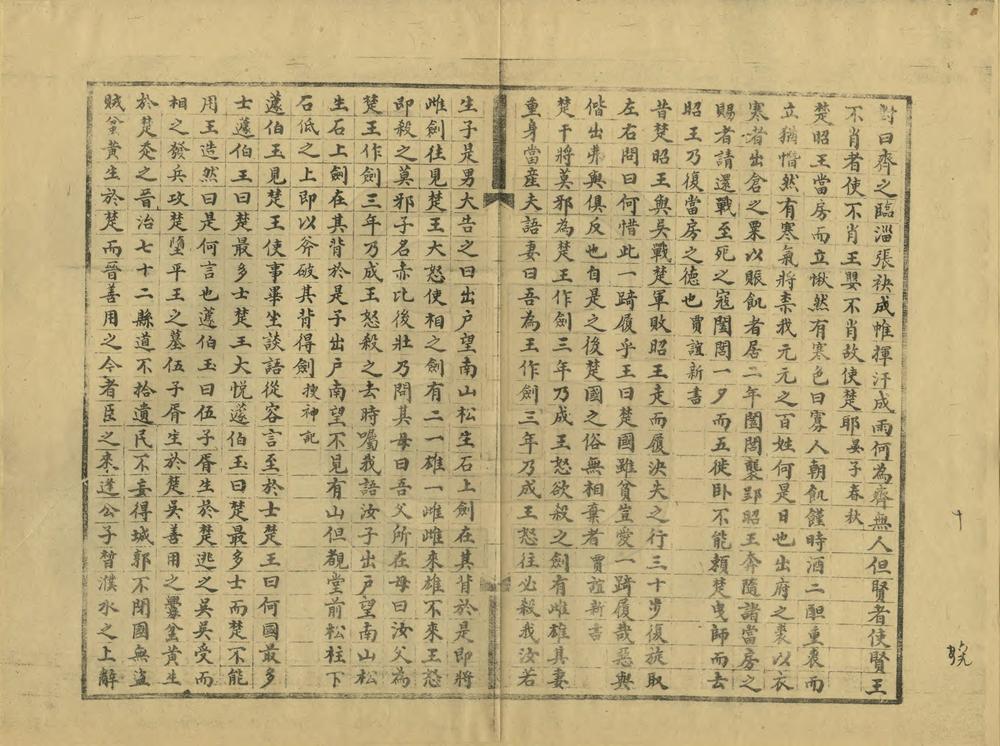 對曰齊之臨淄張袂成帷揮汗成雨何為齊無人但賢者使賢王
不肖者使不肖王嬰不肖故使楚耶晏子春秋
楚昭王當房而立愀然有寒色曰寡人朝飢饉時酒二𨠑重裘而
立猶憯然有寒氣將柰我元元之百姓何是日也出府之裘以衣
寒者出倉之粟以賑飢者居二年闔閭襲郢昭王奔隨諸當房之
賜者請還戰至死之寇闔閭一夕而五徙卧不能賴楚曳師而去
昭王乃復當房之德也賈誼新書
昔楚昭王與吳戰楚軍敗昭王走而履決失之行三十步復旋取
左右問曰何惜此一踦履乎王曰楚國雖貧豈愛一踦履哉惡與
偕出弗與俱反也自是之後楚國之俗無相棄者賈誼新書
楚干將莫邪為楚王作劍三年乃成王怒欲殺之劍有雌雄其妻
重身當産夫語妻曰吾為王作劍三年乃成王怒往必殺我汝若
生子是男大告之曰出户望南山松生石上劍在其背於是即將
雌劍往見楚王大怒使相之劍有二一雄一雌雌來雄不來王怒
即殺之莫邪子名赤比後壯乃問其母曰吾父所在母曰汝父為
楚王作劍三年乃成王怒殺之去時囑我語汝子出户望南山松
生石上劍在其背於是子出户南望不見有山但覩堂前松柱下
石低之上即以斧破其背得劍搜神記
蘧伯玉見楚王使事畢坐談語從容言至於士楚王曰何國最多
士蘧伯王曰楚最多士楚王大悦蘧伯玉曰楚最多士而楚不能
用王造然曰是何言也蘧伯玉曰伍子胥生於楚逃之吳吳受而
相之發兵攻楚墮平王之墓伍子胥生於楚吳善用之釁盆黄生
於楚奔之晉治七十二縣道不拾遺民不妄得城郭不閉國無盜
賊釁黄生於楚而晉善用之今者臣之來逢公子晳濮水之上辭